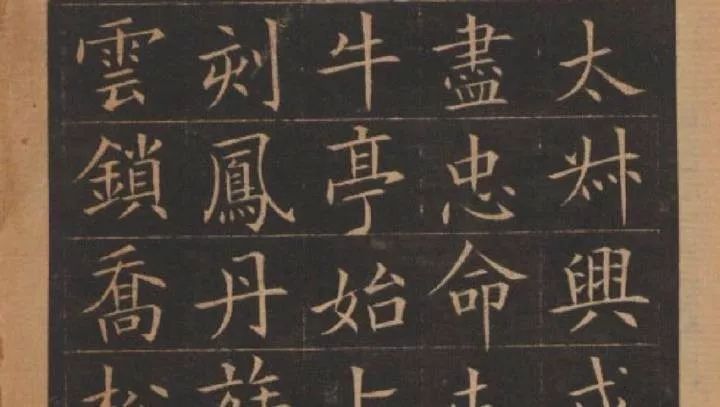 太興
盡忠命
牛亭始
刻鳳丹
雲鎖喬松